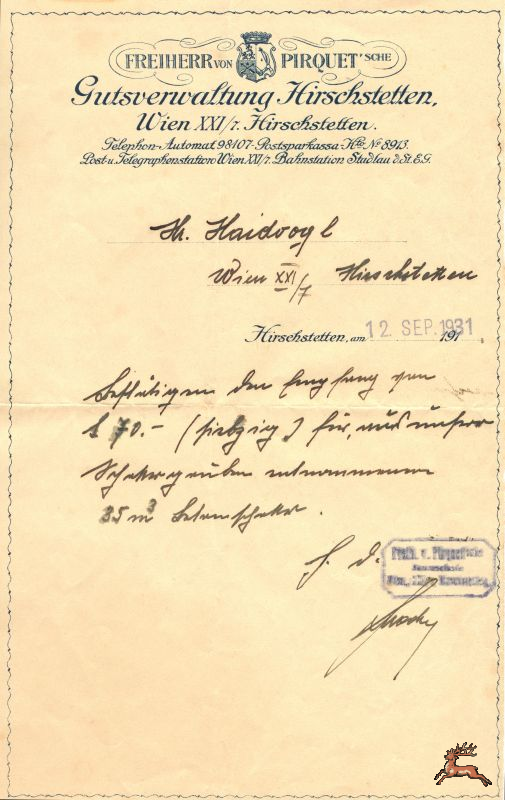 FREIHERR VON PIRQUET'SCHE
Gutsverwaltung Hirschstetten,
Wien XXI/7. Hirschstetten.
Telephon-Automat 98107. Postsparkassa-Kto No 8913.
Post-u.Telegraphenstation Wien XXI/7. Bahnstation Stadlau d.St.E.G.
Hr. Haidvogl
Wien XXI/7 Hirschstetten
Hirschstetten, am 12 SEP. 1931 191
Bestätigen den Empfang von
S 70.- (siebzig) für, aus unserer
Schottergruben entnommenen
35 m³ Betonschotter.